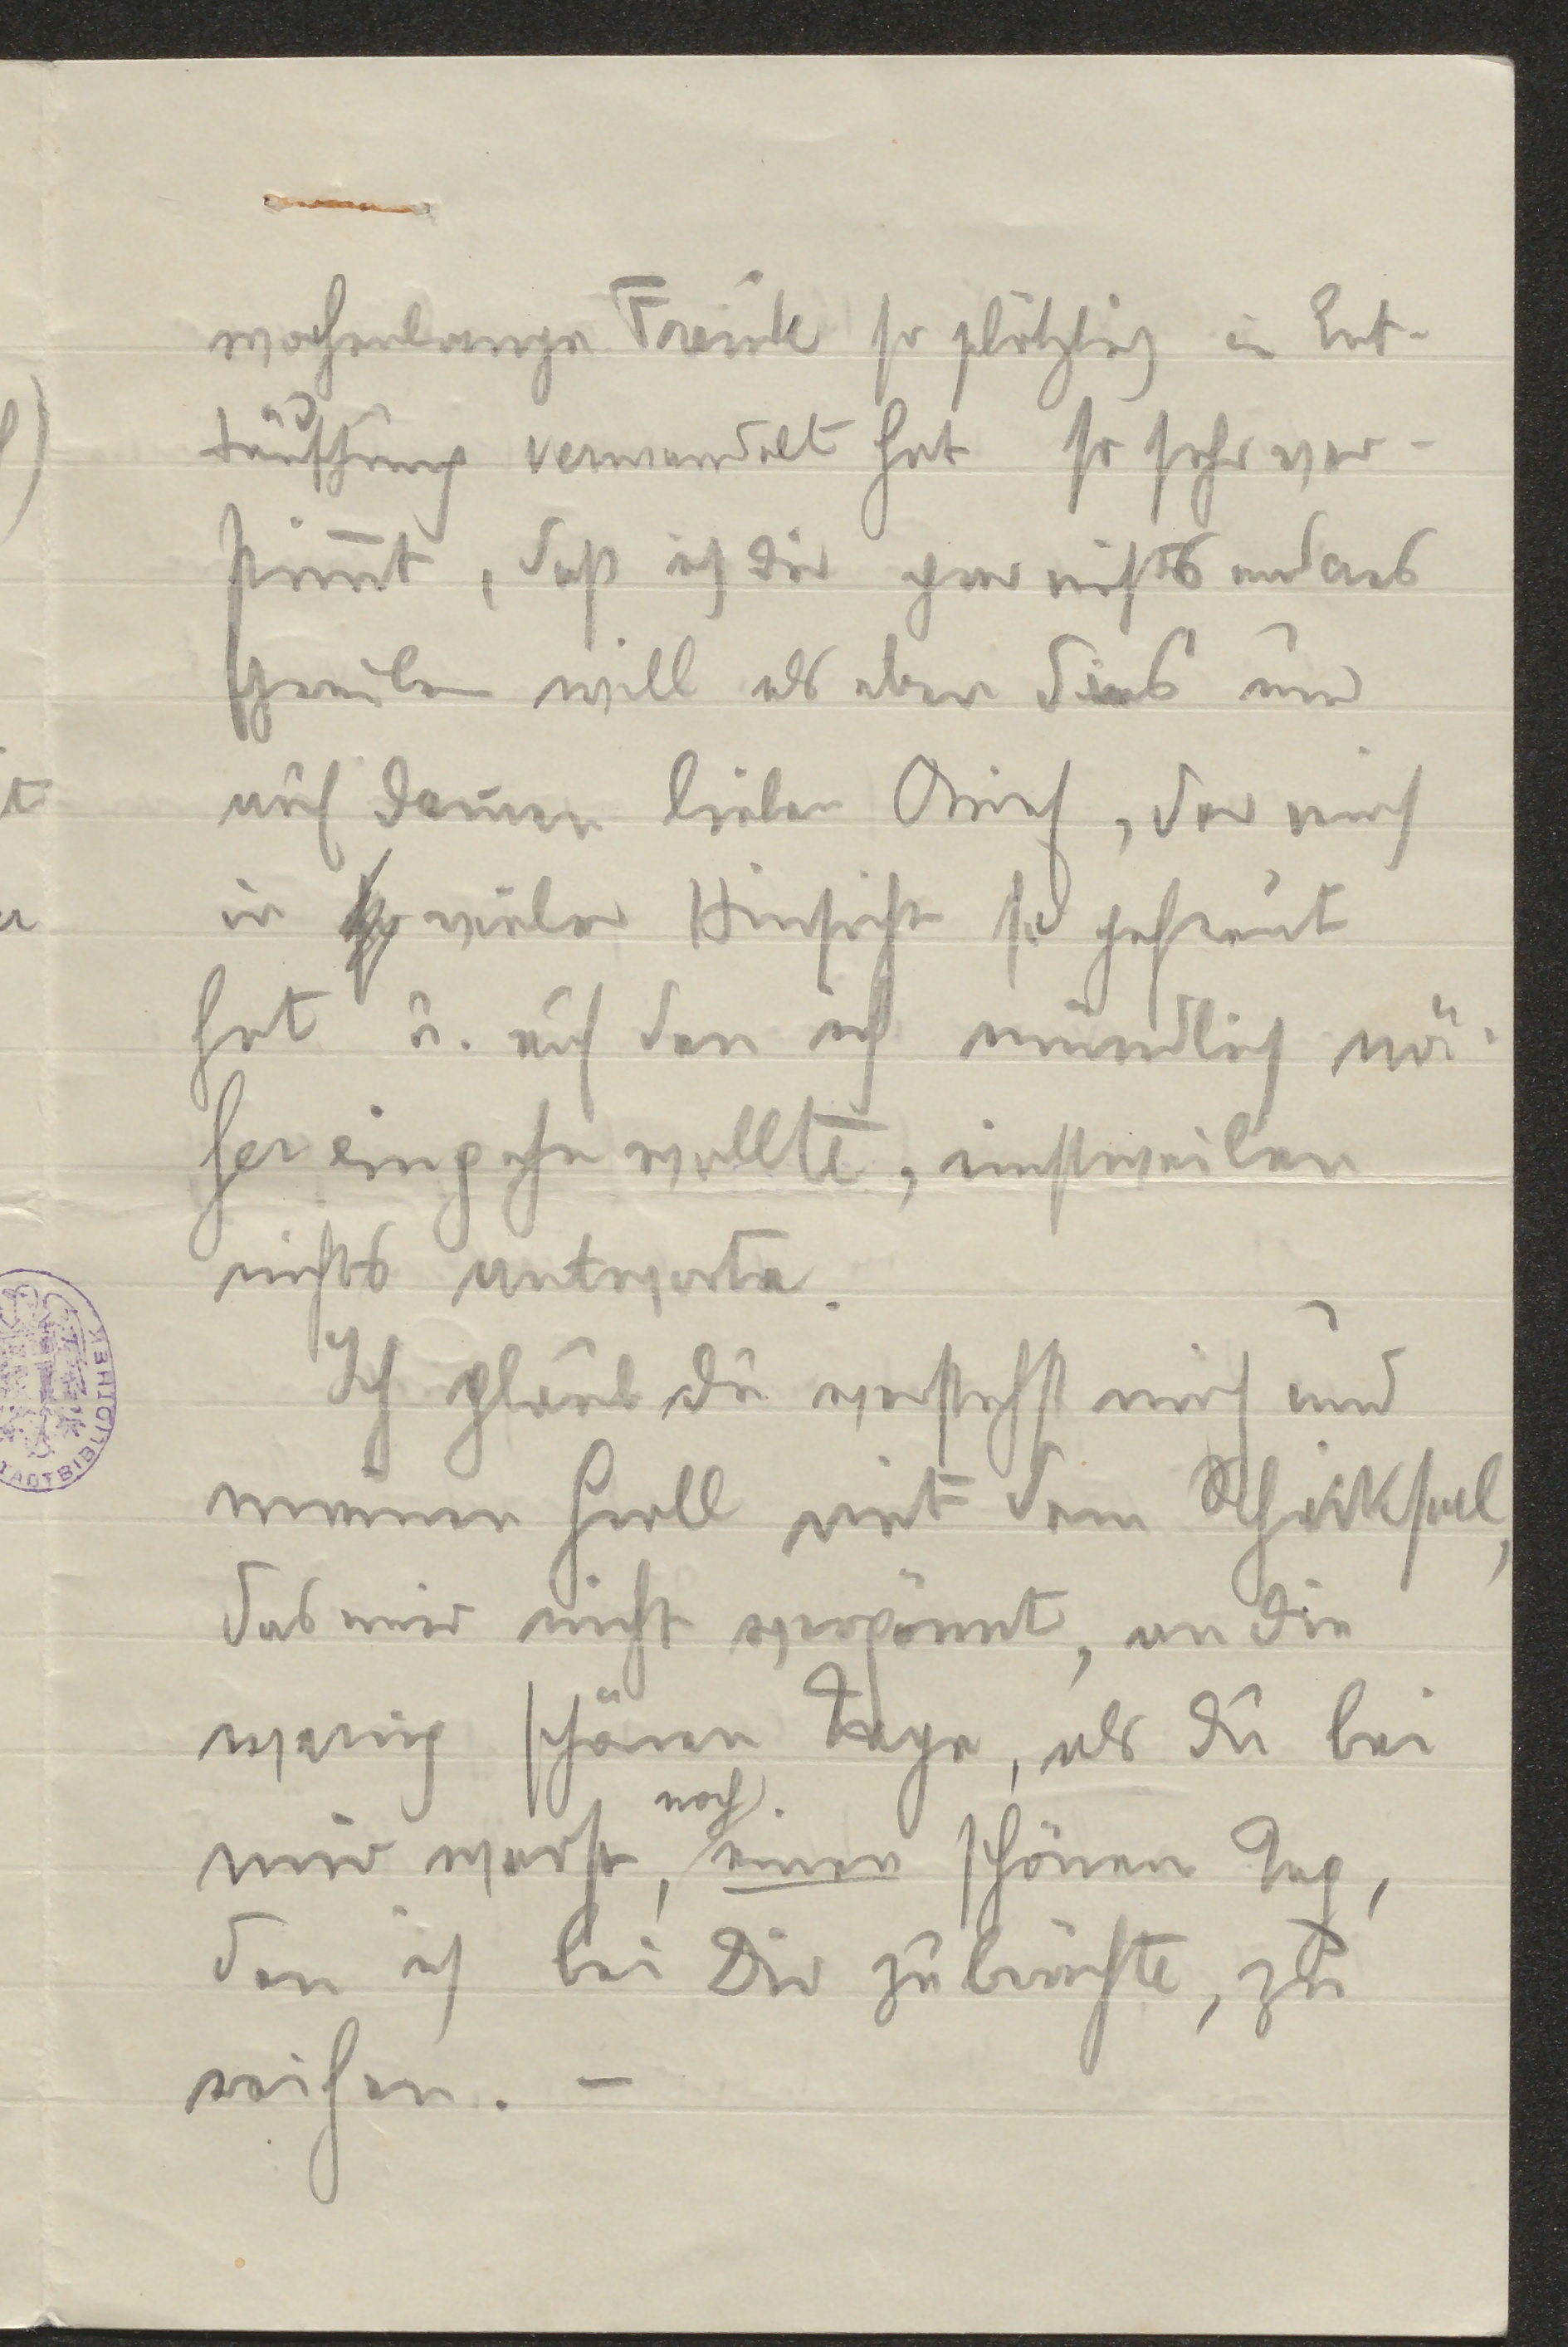 wochenlange Freude so plötzlich in Ent-
täuschung verwandelt hat so sehr ver-
stim̅t, daß ich dir gar nichts andres
schreiben will als eben dies und
auf deinen lieben Brief, der mich
in vieler Hinsicht so gefreut
hat u. auf den ich mündlich nä-
her eingehn wollte, einstweilen
nichts antworte.
Ich glaub du verstehst mich und
meinen Groll mit dem Schicksal,
das mir nicht vergönnt, an die
wenig schönen Tage, als du bei
noch
mir warst, einen schönen Tag,
den ich bei Dir zubrächte, zu
reihen. –
STADTBIBLIOTHEK